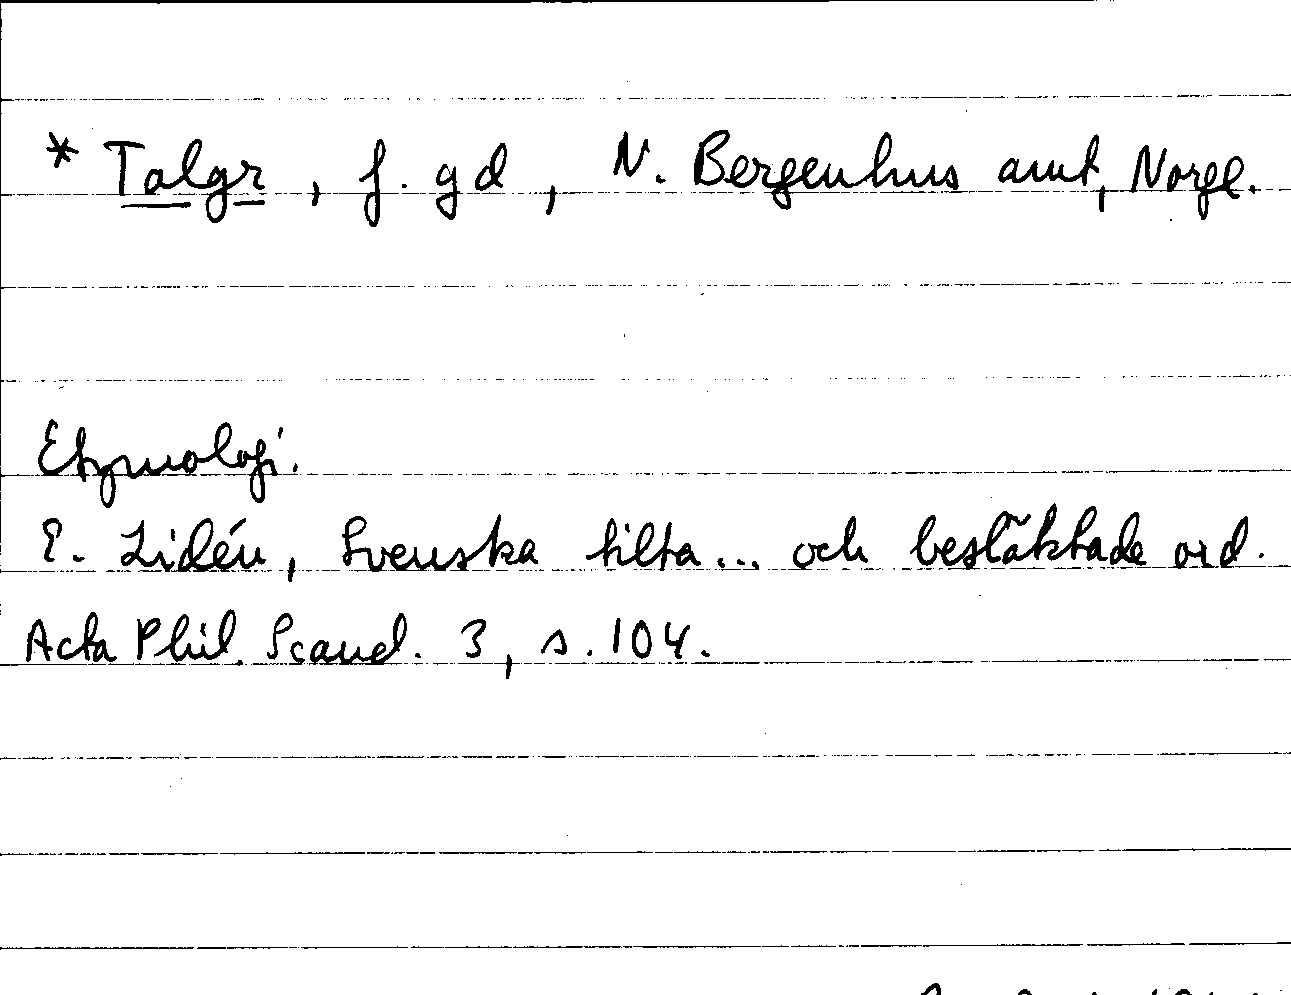 * Talgr, f. gd, N. Bergenhus amt, Norge.
Etymologi.
E. Lidén, Svenska tilta... och besläktade ord.
Acta Phil. Scand. 3, s. 104.